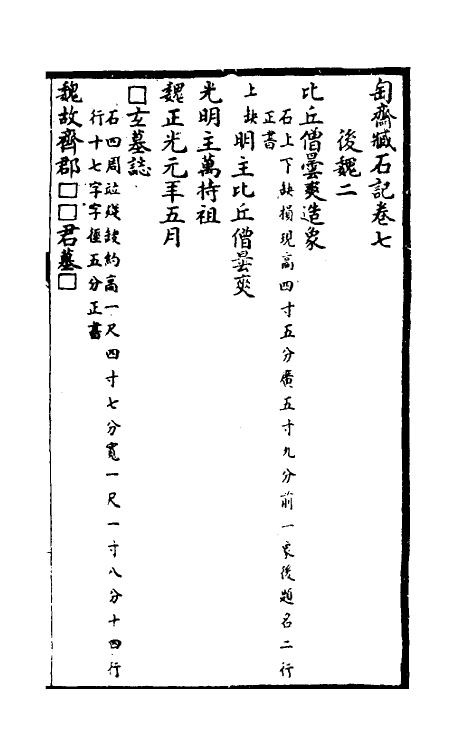 匋齋臧石記卷七
後魏二
比丘僧曇奭造象
石上下缺損現高四寸五分廣五寸九分前一象後題名二行
正書
上缺明主比丘僧曇奭
光明主萬特祖
魏正光元年五月
□玄墓誌
石四周竝殘缺約高一尺四寸七分寬一尺一寸八分十四行
行十七字字徑五分正書
魏故齊郡□□君墓□